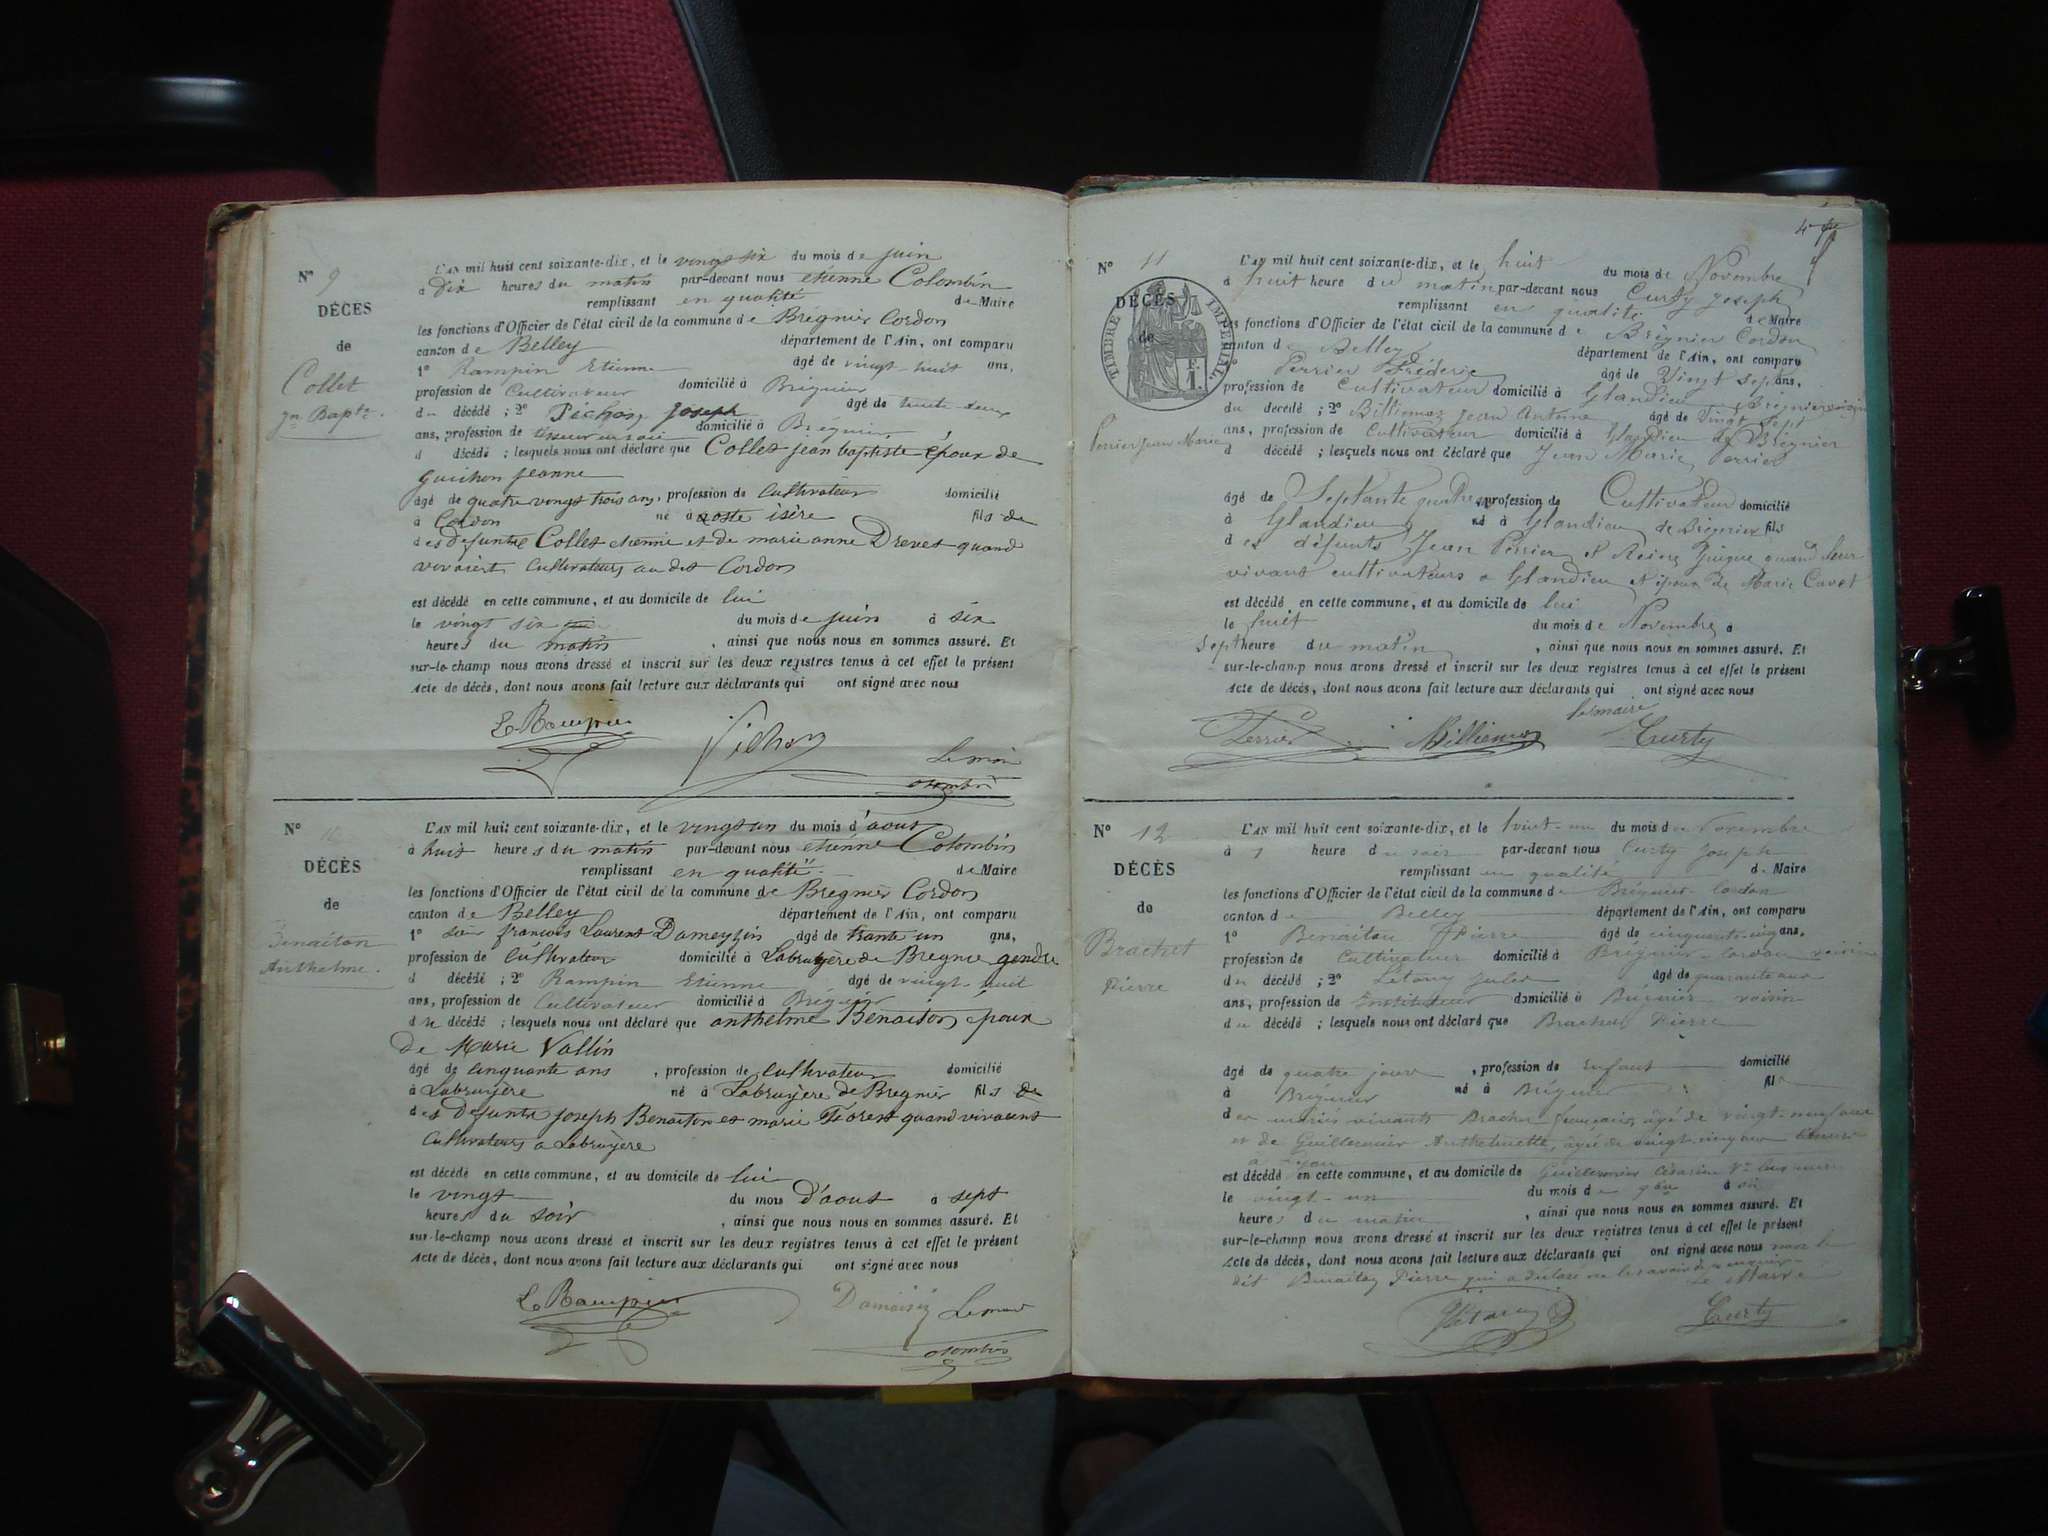 N° 9
DÉCÈS
de
Collet
Jn Bapte.
L'AN mil huit cent soixante-dix, et le vingt six du mois de juin
à dix heures du matin par-devant nous etienne Colombin
remplissant en qualité de Maire
les fonctions d'Officier de l'état civil de la commune de Bregnier Cordon
canton de Belley département de l'Ain, ont comparu
1° Rampin Etienne âgé de vingt-huit ans,
profession de Cultivateur domicilié à Brégnier
du décédé ; 2° Pichon Joseph âgé de trente deux
ans, profession de tisseur en soie domicilié à Brégnier
d décédé ; lesquels nous ont déclaré que Collet jean baptiste époux de
Guichon jeanne
âgé de quatre vingt trois ans, profession de Cultivateur domicilié
à Cordon né à aoste isère fils de
des defunts Collet etienne et de marie anne Drevet quand
vivaient Cultivateurs au dit Cordon
est décédé en cette commune, et au domicile de lui
le vingt six du mois de juin à six
heures du matin , ainsi que nous nous en sommes assuré. Et
sur-le-champ nous avons dressé et inscrit sur les deux registres tenus à cet effet le présent
Acte de décès, dont nous avons fait lecture aux déclarants qui ont signé avec nous
E Rampin Pichon Le maire
Colombin
N° 10
DÉCÈS
de
Benaiton
Anthelme.
L'AN mil huit cent soixante-dix, et le vingt un du mois d'aout
à huit heures du matin par-devant nous etienne Colombin
remplissant en qualité de Maire
les fonctions d'Officier de l'état civil de la commune de Bregnier Cordon
canton de Belley département de l'Ain, ont comparu
1° sieur françois Laurent Dameyzin âgé de trante un ans,
profession de Cultivateur domicilié à Labruyère de Bregnier gendre
d décédé ; 2° Rampin Etienne âgé de vingt-huit
ans, profession de Cultivateur domicilié à Brégnier
du décédé ; lesquels nous ont déclaré que anthelme Benaiton époux
de Marie Vallin
âgé de cinquante ans , profession de Cultivateur domicilié
à Labruyère né à Labruyère de Bregnier fils de
des defunts joseph Benaiton et marie quand vivaient
Cultivateurs a Labruyère
est décédé en cette commune, et au domicile de lui
le vingt du mois d'aout à sept
heures du soir , ainsi que nous nous en sommes assuré. Et
sur-le-champ nous avons dressé et inscrit sur les deux registres tenus à cet effet le présent
Acte de décès, dont nous avons fait lecture aux déclarants qui ont signé avec nous
E Rampin Le maire
Colombin
N° 11
DÉCÈS
de
TIMBRE IMPERIAL
F.
1.
Perrier Jean Marie
L'AN mil huit cent soixante-dix, et le huit du mois de Novembre
à huit heure du matin par-devant nous Curty Joseph
remplissant en qualité de Maire
les fonctions d'Officier de l'état civil de la commune de Brégnier Cordon
canton de Belley département de l'Ain, ont comparu
1° Perrier Fréderic âgé de Vingt sept ans,
profession de Cultivateur domicilié à Glandieu Brégnier voisin
du décédé ; 2° Billiemaz Jean Antoine âgé de Vingt sept
ans, profession de Cultivateur domicilié à Glandieu de Brégnier
d décédé ; lesquels nous ont déclaré que Jean Marie Perrier
âgé de Septante quatre ans, profession de Cultivateur domicilié
à Glandieu né à Glandieu de Brégnier fils
des défunts Jean Perrier et Reine Guigue quand leur
vivant cultivateurs a Glandieu et époux de Marie Cavet
est décédé en cette commune, et au domicile de lui
le huit du mois de Novembre à
Sept heure du matin , ainsi que nous nous en sommes assuré. Et
sur-le-champ nous avons dressé et inscrit sur les deux registres tenus à cet effet le présent
Acte de décès, dont nous avons fait lecture aux déclarants qui ont signé avec nous
le maire
Perrier Billiemaz Curty
N° 12
DÉCÈS
de
Brachet
Pierre
L'AN mil huit cent soixante-dix, et le vingt-un du mois de Novembre
à 1 heure du soir par-devant nous Curty Joseph
remplissant en qualité de Maire
les fonctions d'Officier de l'état civil de la commune de Brégnier-Cordon
canton de Belley département de l'Ain, ont comparu
1° Benaiton Pierre âgé de cinquante-cinq ans,
profession de Cultivateur domicilié à Brégnier-Cordon voisin
du décédé ; 2° Létany Jules âgé de quarante deux
ans, profession de Instituteur domicilié à Brégnier voisin
du décédé ; lesquels nous ont déclaré que Brachet Pierre
âgé de quatre jours , profession de enfant domicilié
à Brégnier né à Brégnier fils
des mariés vivants Brachet français âgé de vingt-neuf ans
et de Guillermier Anthelmette, âgée de vingt-cinq ans
à Lyon
est décédé en cette commune, et au domicile de Guillermier
le vingt-un du mois de 9bre à six
heures du matin , ainsi que nous nous en sommes assuré. Et
sur-le-champ nous avons dressé et inscrit sur les deux registres tenus à cet effet le présent
Acte de décès, dont nous avons fait lecture aux déclarants qui ont signé avec nous non le
dit Benaiton Pierre qui a déclaré ne le savoir de ce enquis
Le Maire
Létany Curty